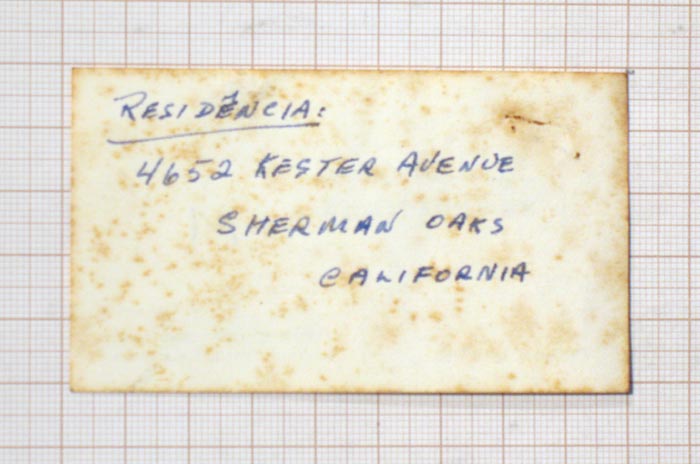 RESIDÊNCIA:
4652 KESTER AVENUE
SHERMAN OAKS
CALIFORNIA